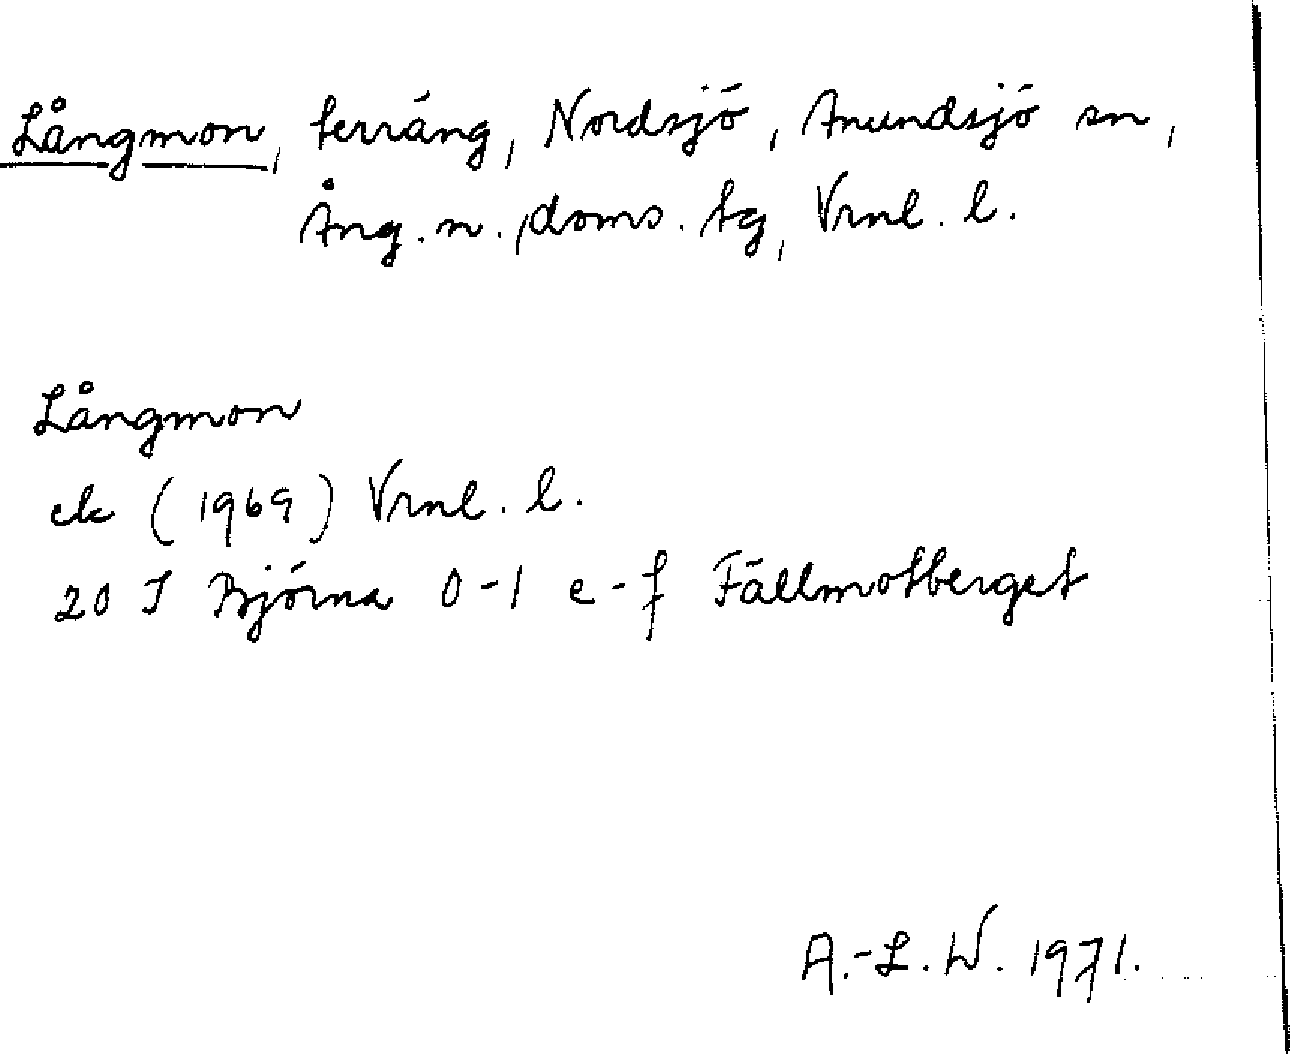 Långmon, terräng, Nordsjö, Anundsjö sn,
Ång. n. doms. tg, Vrnl. l.
Långmon
ek (1969) Vrnl. l.
20 J Björna 0-1 e-f Fällmotberget
A.-L. W. 1971.